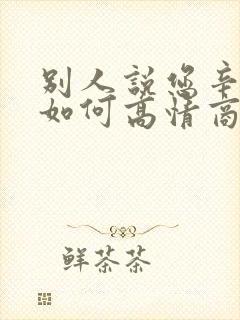 别人説您辛
如何高情商
鲜茶茶